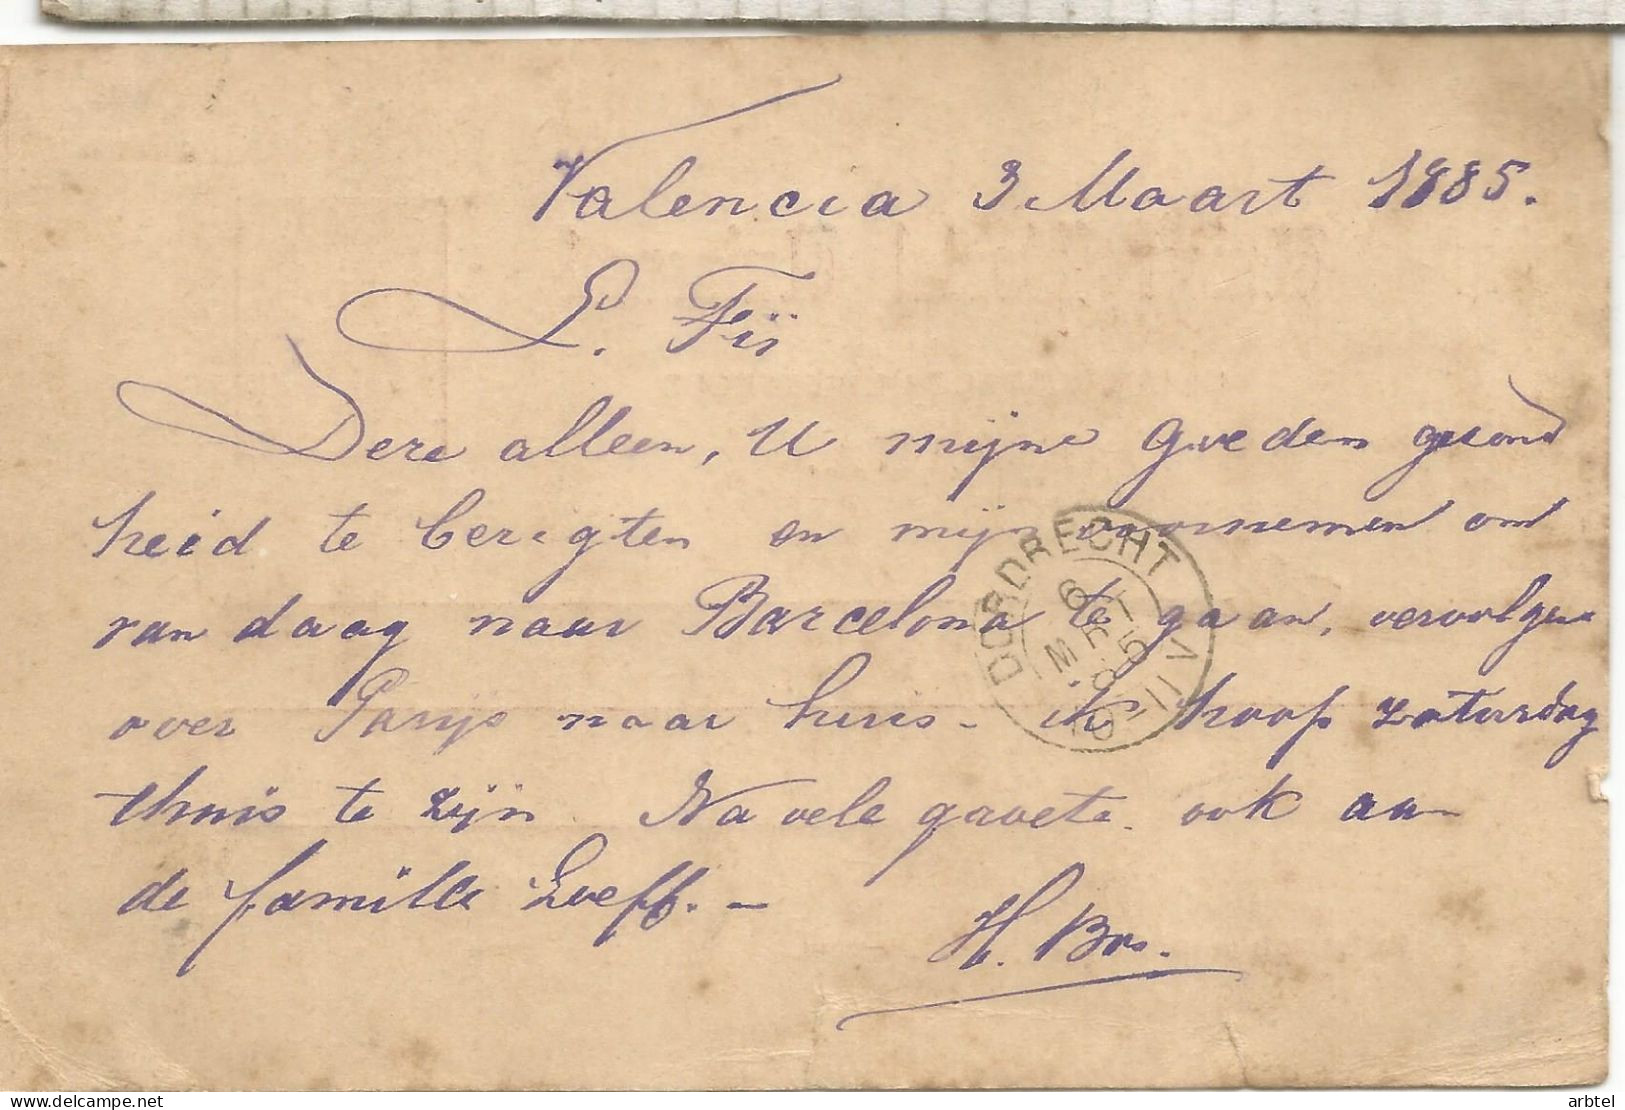 Valencia 3 Maart 1885.
L. Fïs
Deze alleen, U mijne goeden gezond
heid te berigten en mijn voornemen om
van daag naar Barcelona te gaan, vervolgens
over Parijs naar huis - ik hoop zaturdag
thuis te zijn. Na vele groete ook aan
de famille Loeff. -
H. Bos.
DORDRECHT
6 MRT 85
delcampe.net
arbtel